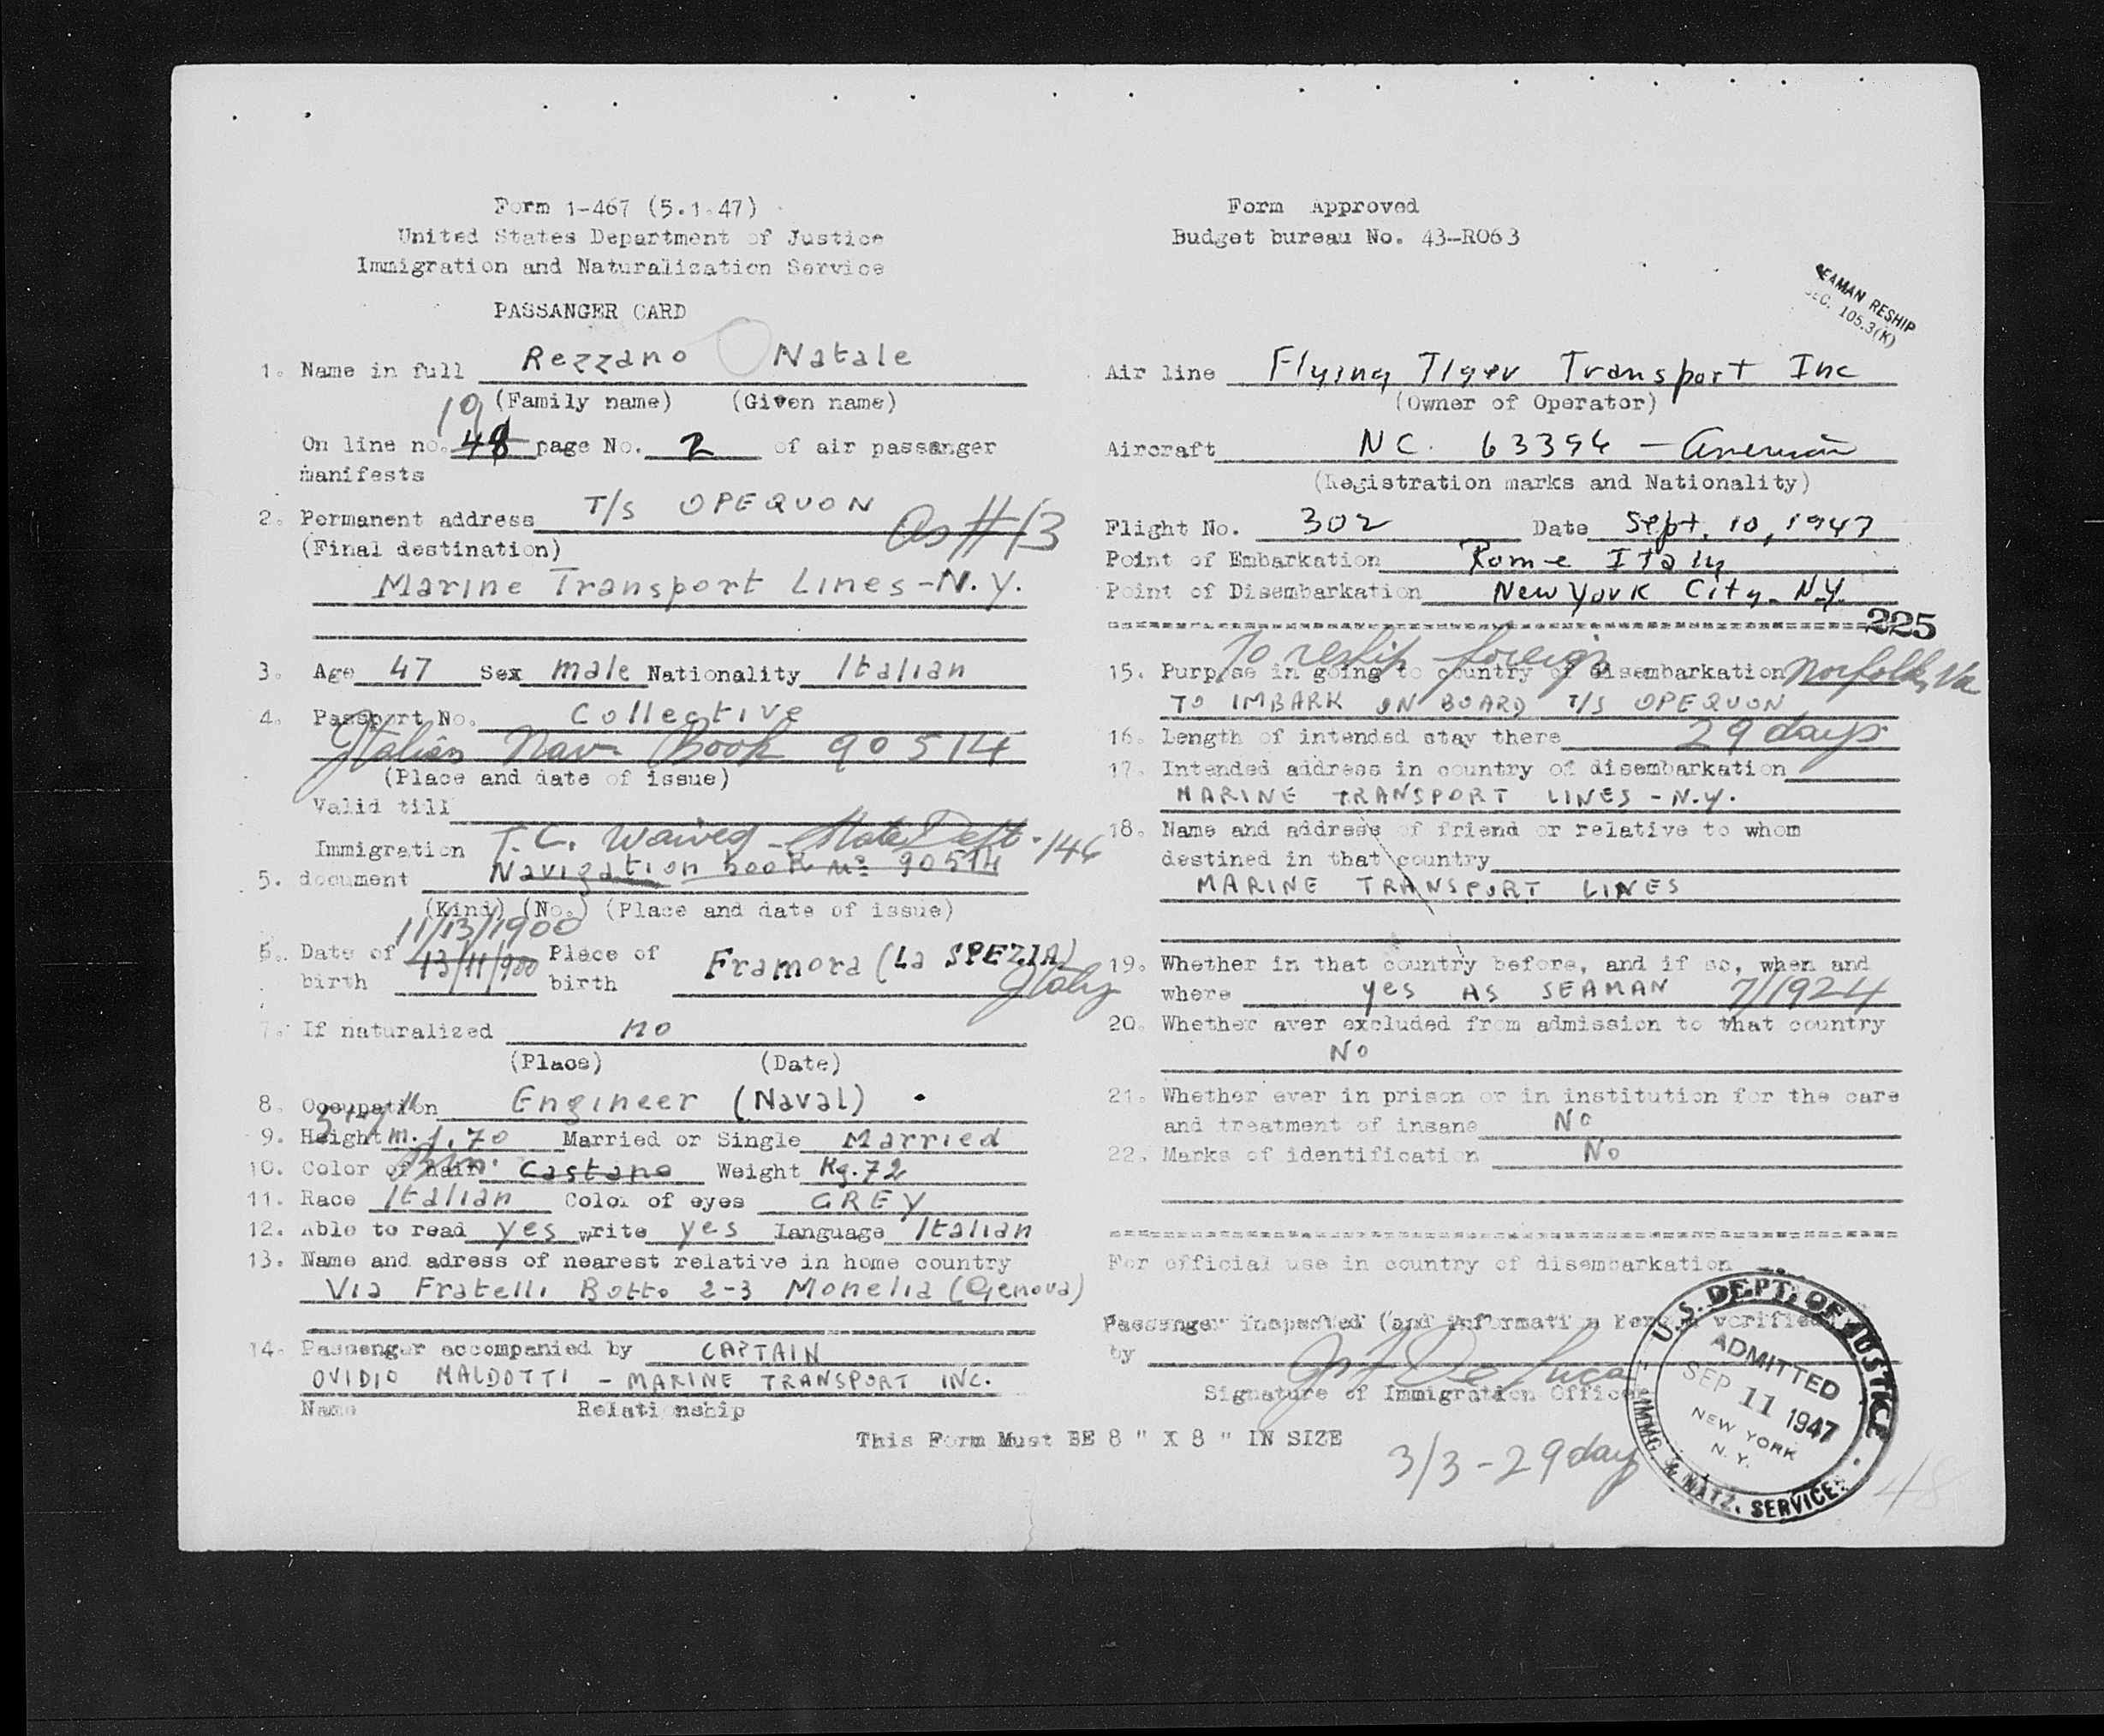 Form 1-467 (5.1.47)
United States Department of Justice
Immigration and Naturalization Service
PASSANGER CARD
1. Name in full Rezzano Natale
(Family name) (Given name)
19
On line no. 48 page No. 2 of air passanger
manifests
2. Permanent address T/S OPEQUON as #13
(Final destination)
Marine Transport Lines - N.Y.
3. Age 47 Sex male Nationality Italian
4. Passport No. Collective
Italian Nav. Book 90514
(Place and date of issue)
Valid till
Immigration T.C. Waived - State Dept. 146
5. document Navigation book nº 90514
(Kind) (No.) (Place and date of issue)
11/13/1900
6. Date of 13/11/900 Place of Framora (La SPEZIA)
birth birth Italy
7. If naturalized no
(Place) (Date)
8. Occupation Engineer (Naval)
9. Height m. 1.70 Married or Single Married
10. Color of hair Brn. Castano Weight Kg. 72
11. Race Italian Color of eyes GREY
12. Able to read yes write yes Language Italian
13. Name and adress of nearest relative in home country
Via Fratelli Botto 2-3 Monelia (Genova)
14. Passenger accompanied by CAPTAIN
OVIDIO MALDOTTI - MARINE TRANSPORT INC.
Name Relationship
Form Approved
Budget bureau No. 43-R063
SEAMAN RESHIP
SEC. 105.3(K)
Air line Flying Tiger Transport Inc
(Owner of Operator)
Aircraft NC. 63394 - American
(Registration marks and Nationality)
Flight No. 302 Date Sept. 10, 1947
Point of Embarkation Rome Italy
Point of Disembarkation New York City. N.Y.
225
To reship foreign
15. Purpose in going to country of disembarkation Norfolk, Va
TO IMBARK ON BOARD T/S OPEQUON
16. Length of intended stay there 29 days
17. Intended address in country of disembarkation
MARINE TRANSPORT LINES - N.Y.
18. Name and address of friend or relative to whom
destined in that country
MARINE TRANSPORT LINES
19. Whether in that country before, and if so, when and
where yes AS SEAMAN 7/1924
20. Whether aver excluded from admission to that country
No
21. Whether ever in prison or in institution for the care
and treatment of insane No
22. Marks of identification No
For official use in country of disembarkation
Passenger inspected (and information hereon verified
by
Signature of Immigration Officer
U.S. DEPT. OF JUSTICE
ADMITTED
SEP 11 1947
NEW YORK
N.Y.
IMMG. & NATZ. SERVICE
This Form Must BE 8 " X 8 " IN SIZE
3/3 - 29 day
48